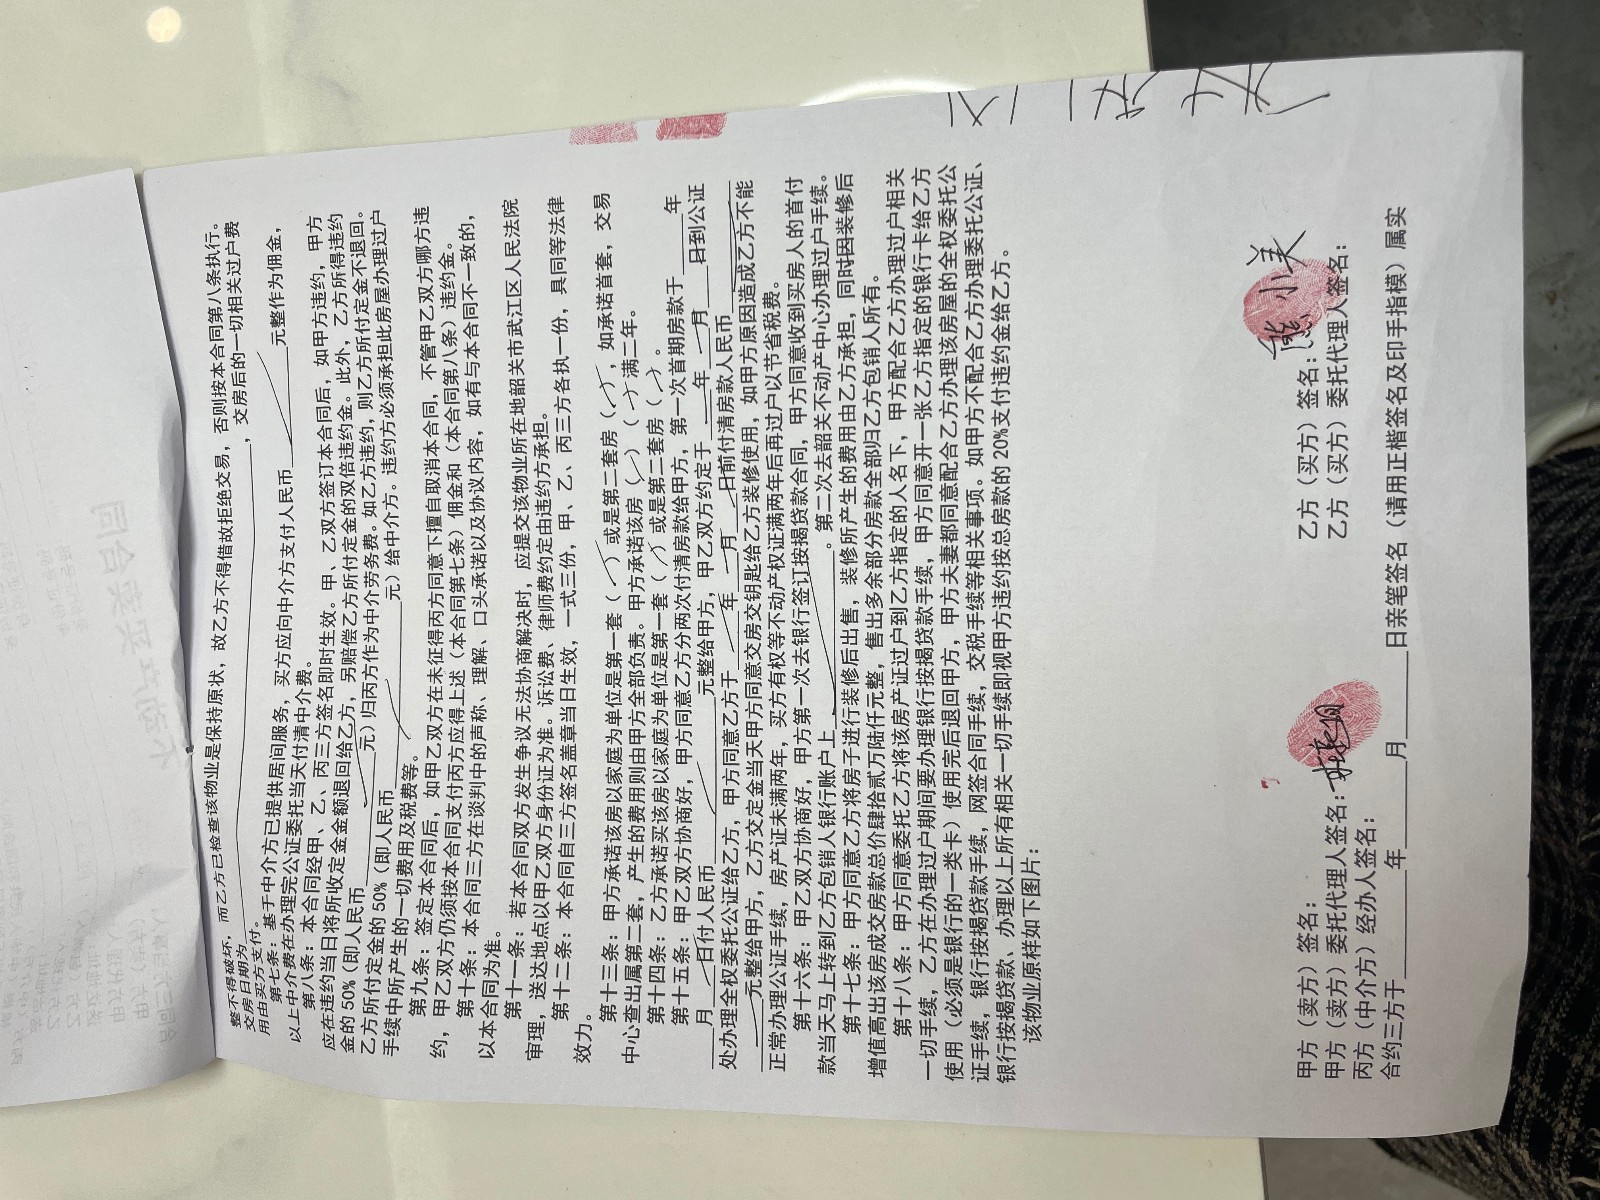 整不得破坏，而乙方已检查该物业是保持原状，故乙方不得借故拒绝交易，否则按本合同第八条执行。
交房日期为，交房后的一切相关过户费
用由买方支付。
第七条：基于中介方已提供居间服务，买方应向中介方支付人民币元整作为佣金，
以上中介费在办理完公证委托当天付清中介费。
第八条：本合同经甲、乙、丙三方签名即时生效。甲、乙双方签订本合同后，如甲方违约，甲方
应在违约当日将所收定金金额退回给乙方，另赔偿乙方所付定金的双倍违约金。此外，乙方所得违约
金的50%（即人民币元）归丙方作为中介劳务费。如乙方违约，则乙方所付定金不退回。
乙方所付定金的50%（即人民币元）给中介方。违约方必须承担此房屋办理过户
手续中所产生的一切费用及税费等。
第九条：签定本合同后，如甲乙双方在未征得丙方同意下擅自取消本合同，不管甲乙双方哪方违
约，甲乙双方仍须按本合同支付丙方应得上述（本合同第七条）佣金和（本合同第八条）违约金。
第十条：本合同三方在谈判中的声称、理解、口头承诺以及协议内容，如有与本合同不一致的，
以本合同为准。
第十一条：若本合同双方发生争议无法协商解决时，应提交该物业所在地韶关市武江区人民法院
审理，送达地点以甲乙双方身份证为准。诉讼费、律师费约定由违约方承担。
第十二条：本合同自三方签名盖章当日生效，一式三份，甲、乙、丙三方各执一份，具同等法律
效力。
第十三条：甲方承诺该房以家庭为单位是第一套（ ）或是第二套房（ ），如承诺首套，交易
中心查出属第二套，产生的费用则由甲方全部负责。甲方承诺该房（ ）（ ）满二年。
第十四条：乙方承诺买该房以家庭为单位是第一套（ ）或是第二套房（ ）。
第十五条：甲乙双方协商好，甲方同意乙方分两次付清房款给甲方，第一次首期房款于年
月日付人民币元整给甲方，甲乙双方约定于年月日到公证
处办理全权委托公证给乙方，甲方同意乙方于年月日前付清房款人民币
元整给甲方，乙方交定金当天甲方同意交房交钥匙给乙方装修使用，如甲方原因造成乙方不能
正常办理公证手续，房产证未满两年，买方有权等不动产权证满两年后再过户以节省税费。
第十六条：甲乙双方协商好，甲方第一次去银行签订按揭贷款合同，甲方同意收到买房人的首付
款当天马上转到乙方包销人银行账户上。第二次去韶关不动产中心办理过户手续。
第十七条：甲方同意乙方将房子进行装修后出售，装修所产生的费用由乙方承担，同时因装修后
增值高出该房成交房款总价肆拾贰万陆仟元整，售出多余部分房款全部归乙方包销人所有。
第十八条：甲方同意委托乙方将该房产证过户到乙方指定的人名下，甲方配合乙方办理过户相关
一切手续，乙方在办理过户期间要办理银行按揭贷款手续，甲方同意开一张乙方指定的银行卡给乙方
使用（必须是银行的一类卡）使用完后退回甲方，甲方夫妻都同意配合乙方办理该房屋的全权委托公
证手续，银行按揭贷款手续，网签合同手续，交税手续等相关事项。如甲方不配合乙方办理委托公证、
银行按揭贷款、办理以上所有相关一切手续即视甲方违约按总房款的20%支付违约金给乙方。
该物业原样如下图片：
甲方（卖方）签名： 乙方（买方）签名：熊小美
甲方（卖方）委托代理人签名： 乙方（买方）委托代理人签名：
丙方（中介方）经办人签名：
合约三方于年月日亲笔签名（请用正楷签名及印手指模）属实